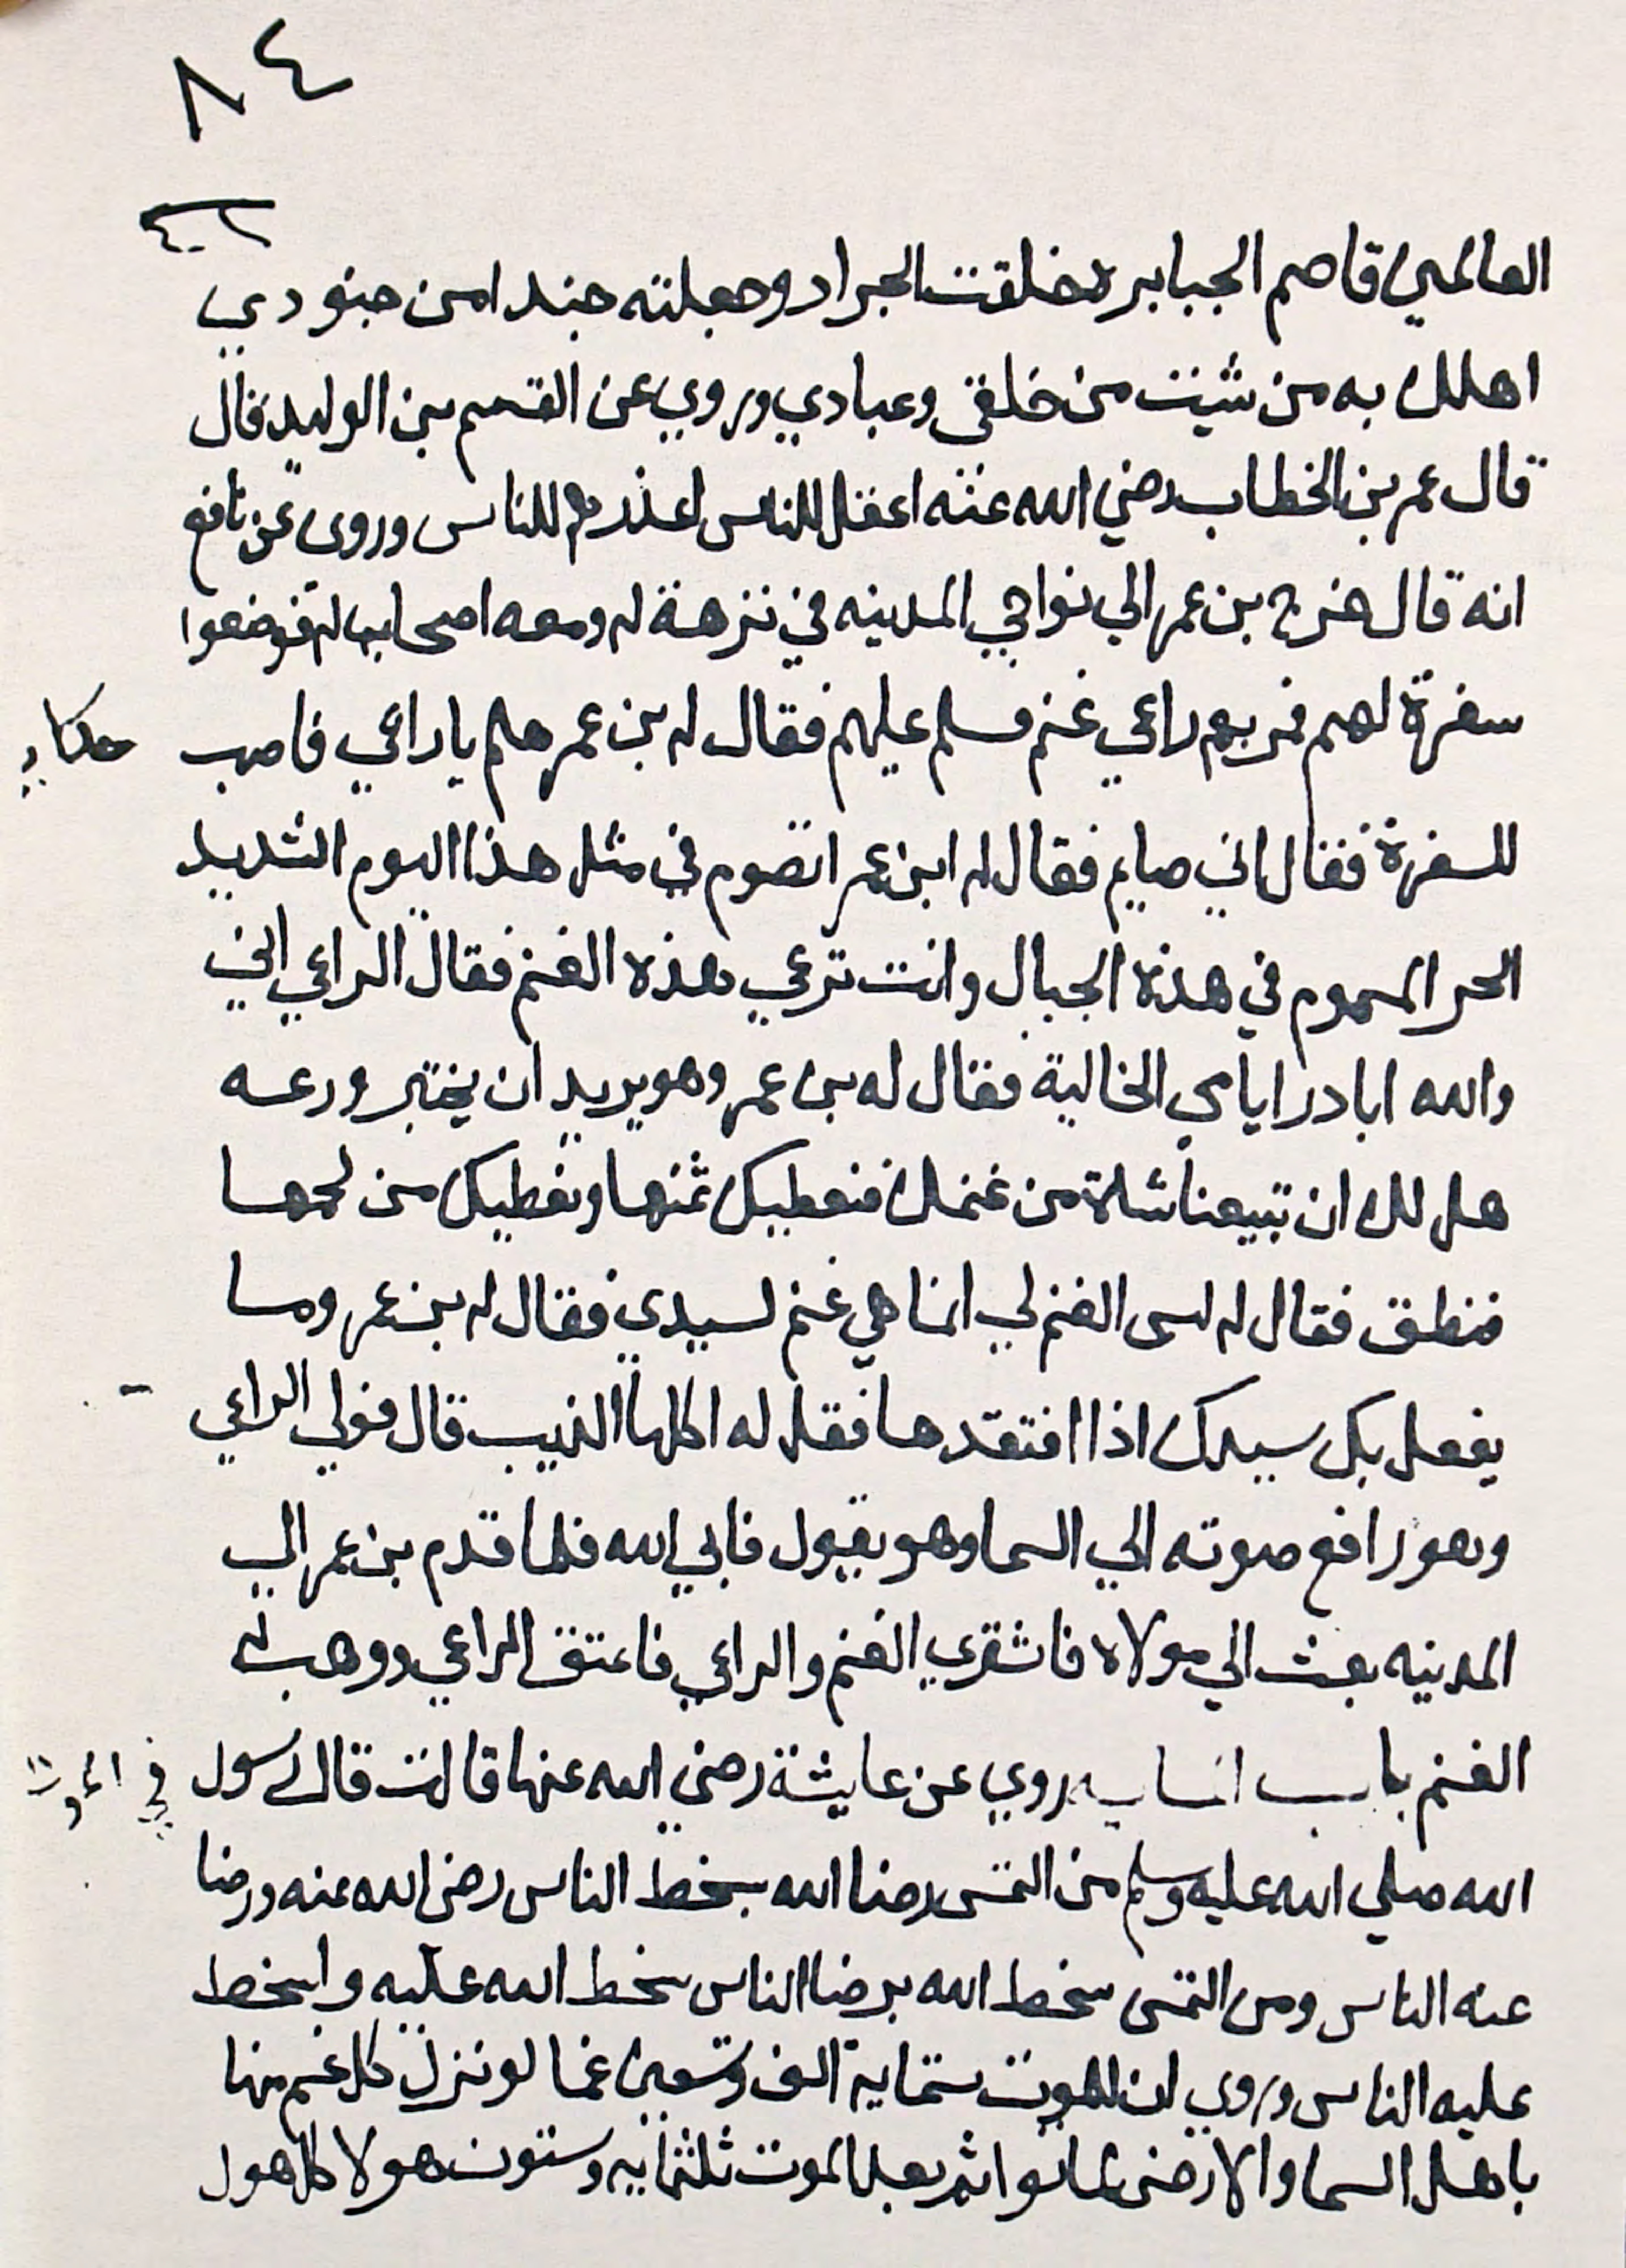 ٨٤
العالمين قاصم الجبابرة خلقت الجراد وجعلته جندا من جنودي
اهلك به من شيت من خلقي وعبادي وروي عن القسم بن الوليد قال
قال عمر بن الخطاب رضي الله عنه اعقل الناس اعذرهم للناس وروى عن نافع
انه قال خرج بن عمر الي نواحي المدينه في نزهة له ومعه اصحاب له فوضعوا
سفرة لهم فمر بهم راعي غنم فسلم عليهم فقال له بن عمر هلم يا راعي فاصب
حكاية
للسفرة فقال اني صايم فقال له ابن عمر اتصوم في مثل هذا اليوم الشديد
الحر المسموم في هذه الجبال وانت ترعي هذه الغنم فقال الراعي اني
والله ابادر ايامي الخالية فقال له بن عمر وهو يريد ان يختبر ورعه
هل لك ان تبيعنا شاة من غنمك فنعطيك ثمنها ونعطيك من لحمها
فنطق فقال له ليس الغنم لي انما هي غنم لسيدي فقال له بن عمر وما
يفعل بك سيدك اذا افتقدها فقل له اكلها الذيب قال فولي الراعي
وهو رافع صوته الي السما وهو يقول فاين الله فلما قدم بن عمر الي
المدينه بعث الي مولاه فاشتري الغنم والراعي فاعتق الراعي ووهب له
الغنم باب روي عن عايشة رضي الله عنها قالت قال رسول
في الموت
الله صلي الله عليه وسلم من التمس رضا الله بسخط الناس رضي الله عنه ورضا
عنه الناس ومن التمس سخط الله برضا الناس سخط الله عليه واسخط
عليه الناس وروي ان للموت ستماية الف وتسعين غما لو نزل كل غم منها
باهل السما والارض لماتوا ثم بعد الموت ثلثماية وستون هولا كل هول